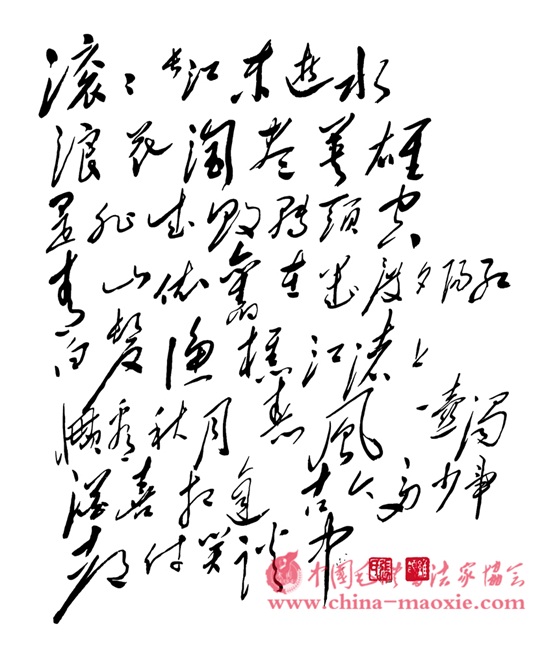 滚滚长江东逝水
浪花淘尽英雄
是非成败转頭空
青山依舊在幾度夕阳红
白髮渔樵江渚上
惯看秋月春風一壺濁
酒喜相逢古今多少事
都付笑谈中
中國毛体書法家協会
www.china-maoxie.com